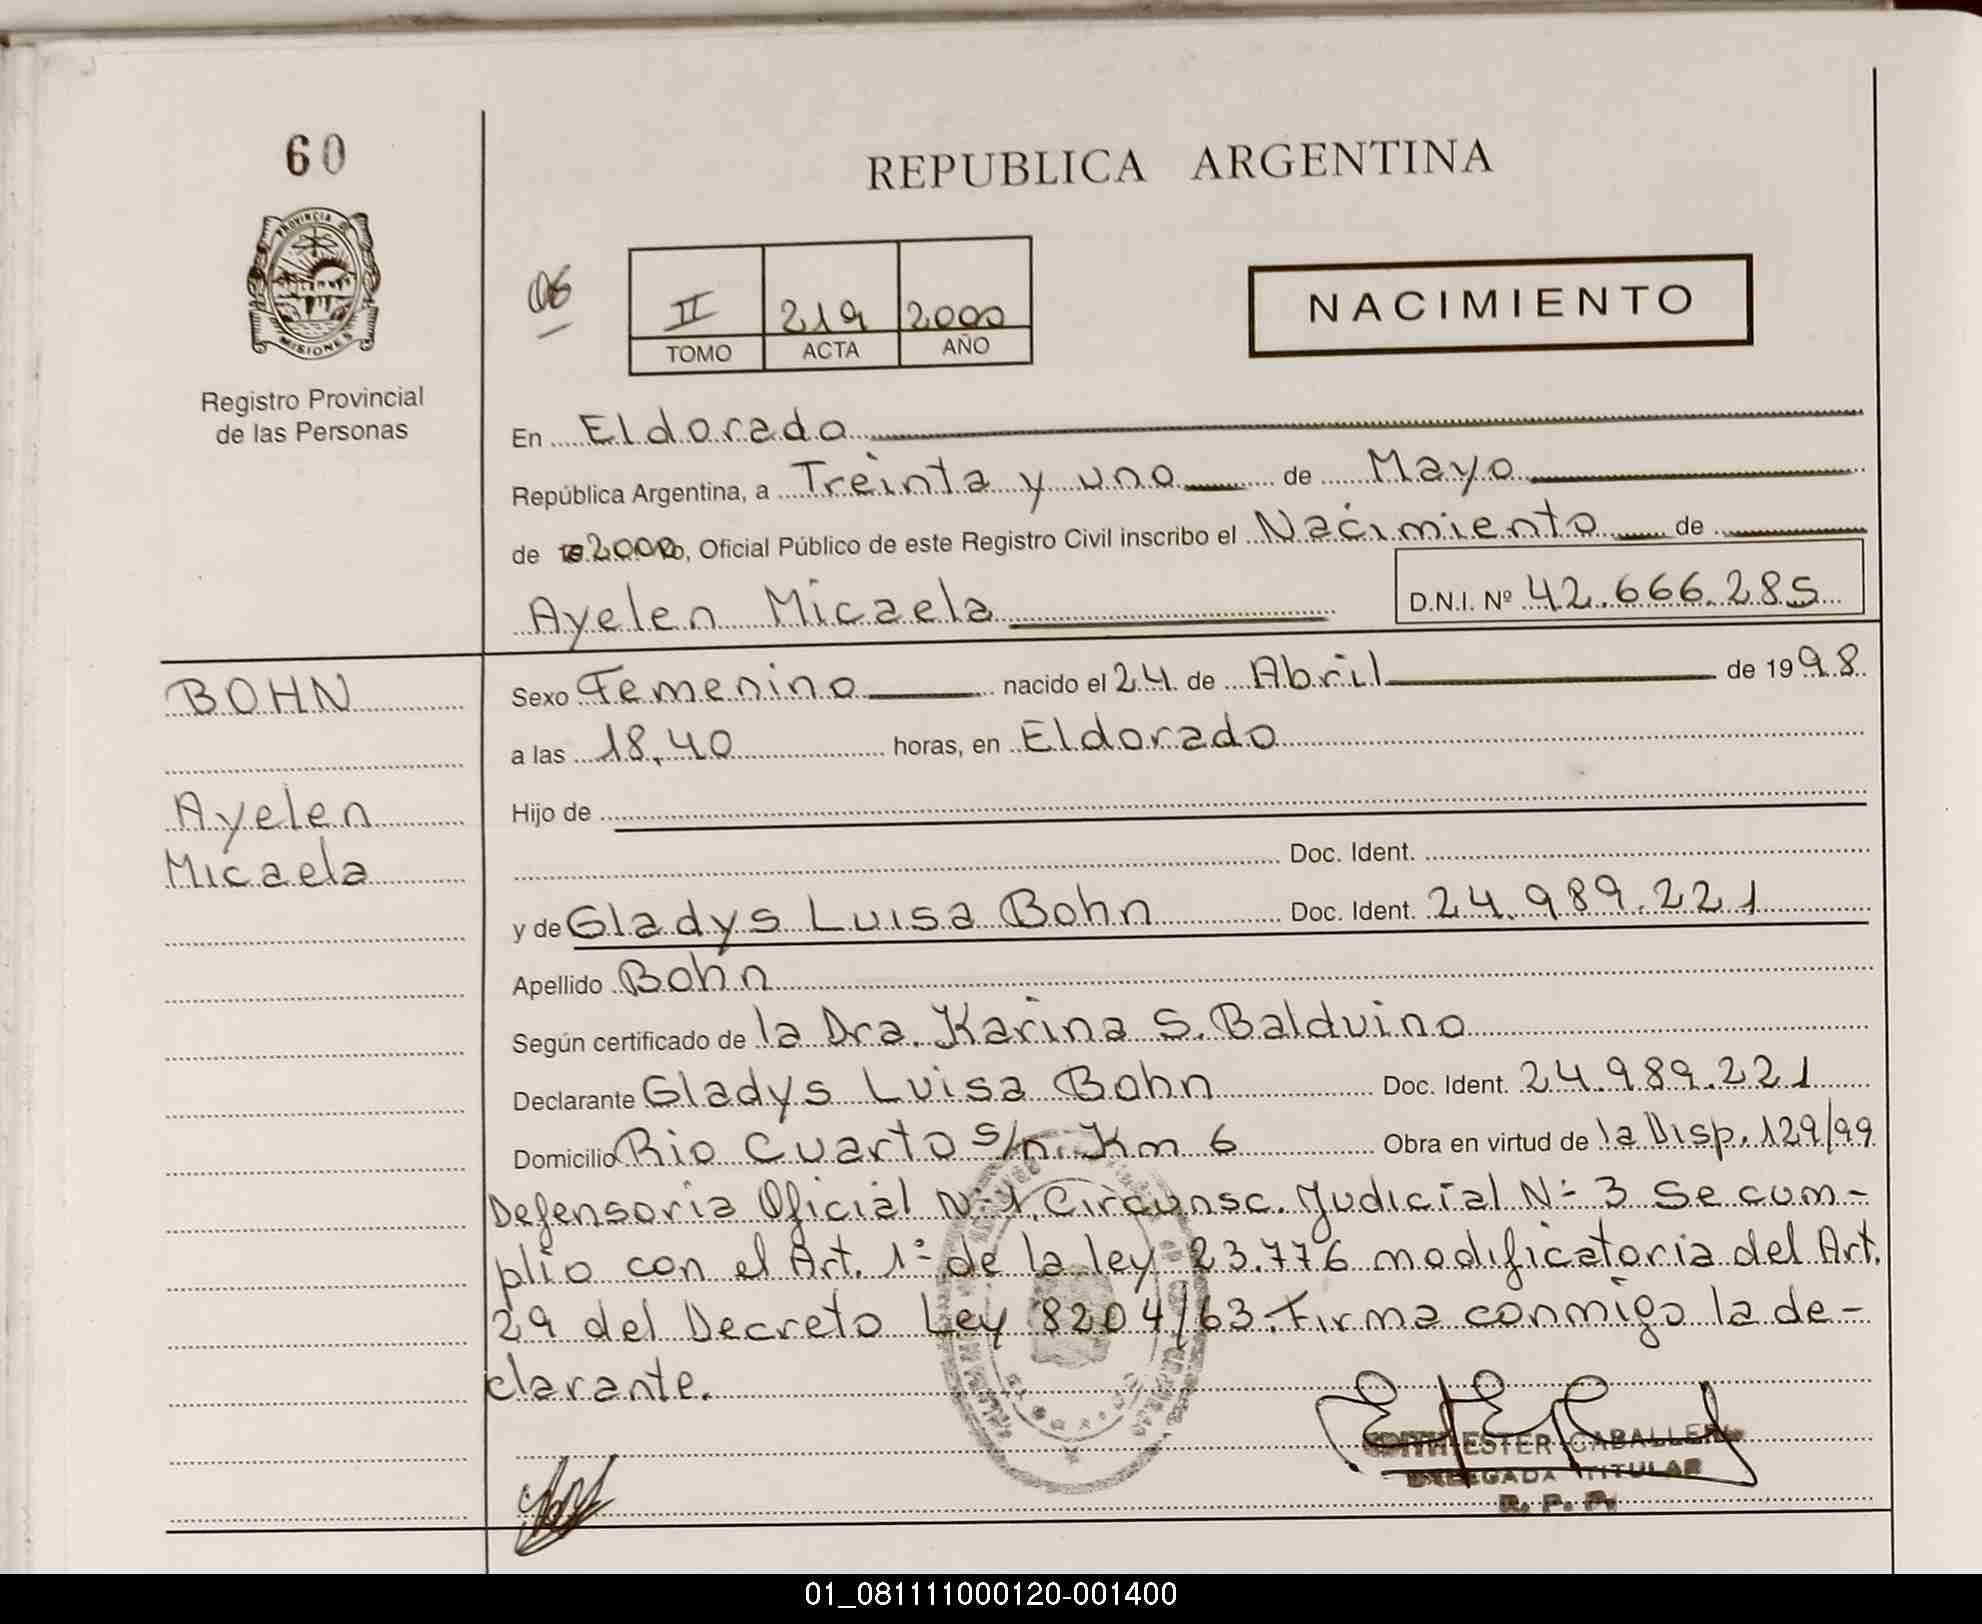 60
PROVINCIA DE
MISIONES
Registro Provincial
de las Personas
REPUBLICA ARGENTINA
06
II 219 2000
TOMO ACTA AÑO
NACIMIENTO
En Eldorado
República Argentina, a Treinta y uno de Mayo
de 2000, Oficial Público de este Registro Civil inscribo el Nacimiento de
Ayelen Micaela D.N.I. Nº 42.666.285
BOHN
Ayelen
Micaela
Sexo Femenino nacido el 24 de Abril de 1998
a las 18,40 horas, en Eldorado
Hijo de
Doc. Ident.
y de Gladys Luisa Bohn Doc. Ident. 24.989.221
Apellido Bohn
Según certificado de la Dra. Karina S. Balduino
Declarante Gladys Luisa Bohn Doc. Ident. 24.989.221
Domicilio Rio Cuarto s/n. Km 6 Obra en virtud de la Disp. 129/99
Defensoria Oficial Nº 1. Circunsc. Judicial Nº 3 Se cum-
plio con el Art. 1º de la ley 23.776 modificatoria del Art.
29 del Decreto Ley 8204/63. Firma conmigo la de-
clarante.
EDITH ESTER CABALLERO
DELEGADA TITULAR
R. P. P.
01_081111000120-001400